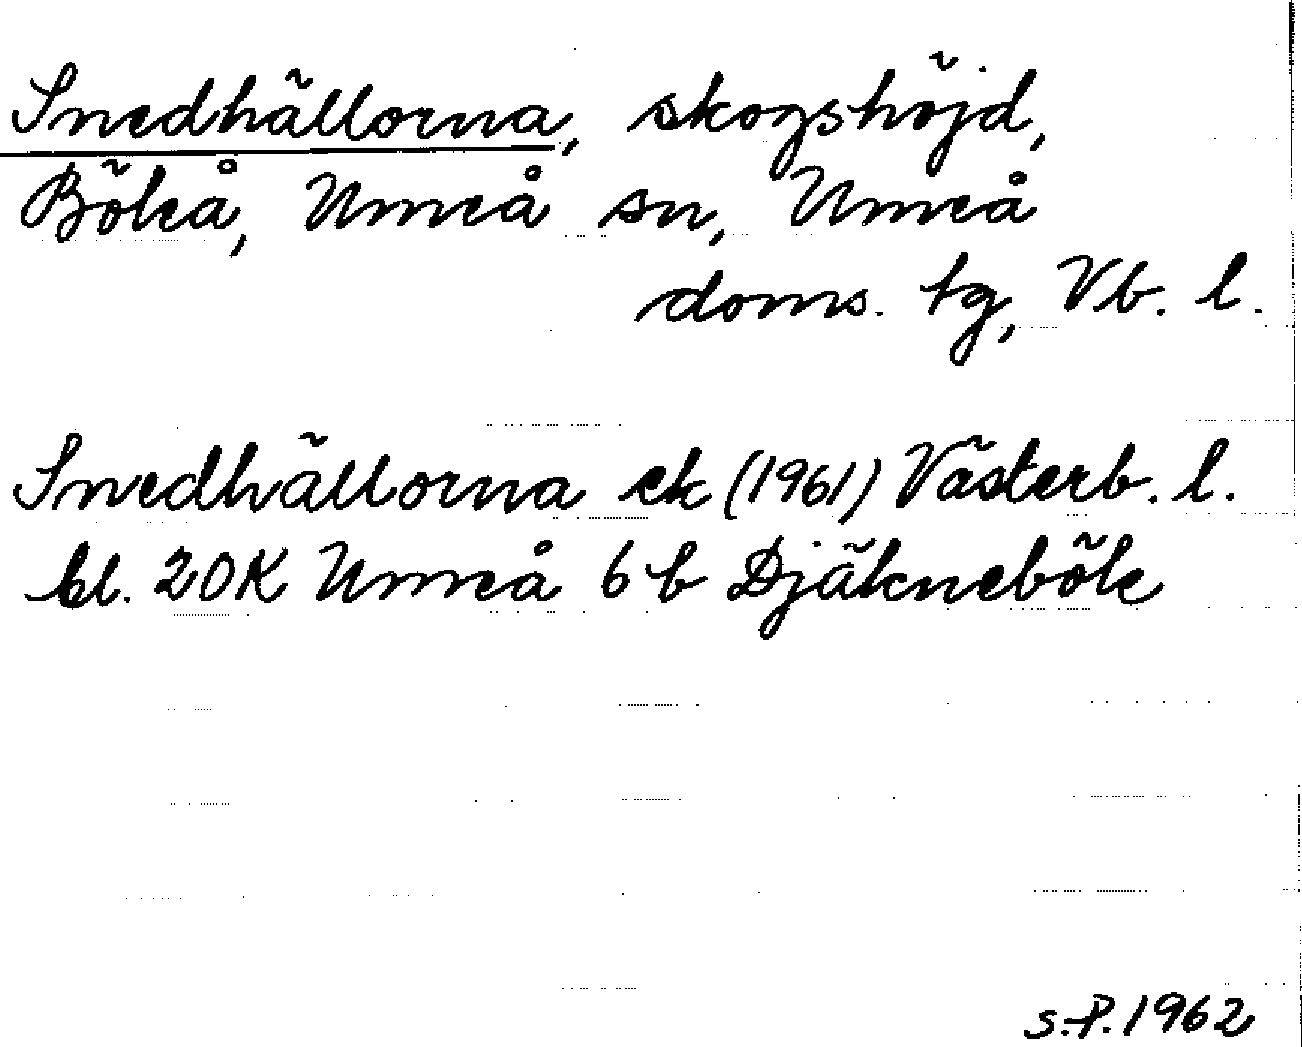 Snedhällorna, skogshöjd,
Böleå, Umeå sn, Umeå
doms. tg, Vb. l.
Snedhällorna ek (1961) Västerb. l.
bl. 20K Umeå 6b Djäkneböle
S.P. 1962